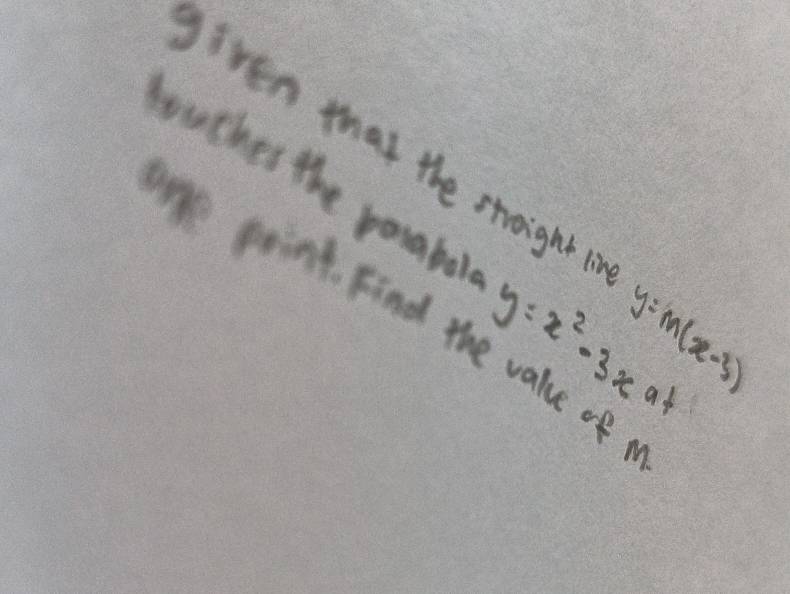 given that the straight line y=m(x-3)
touches the parabola y=x²-3x at
one point. Find the value of m.